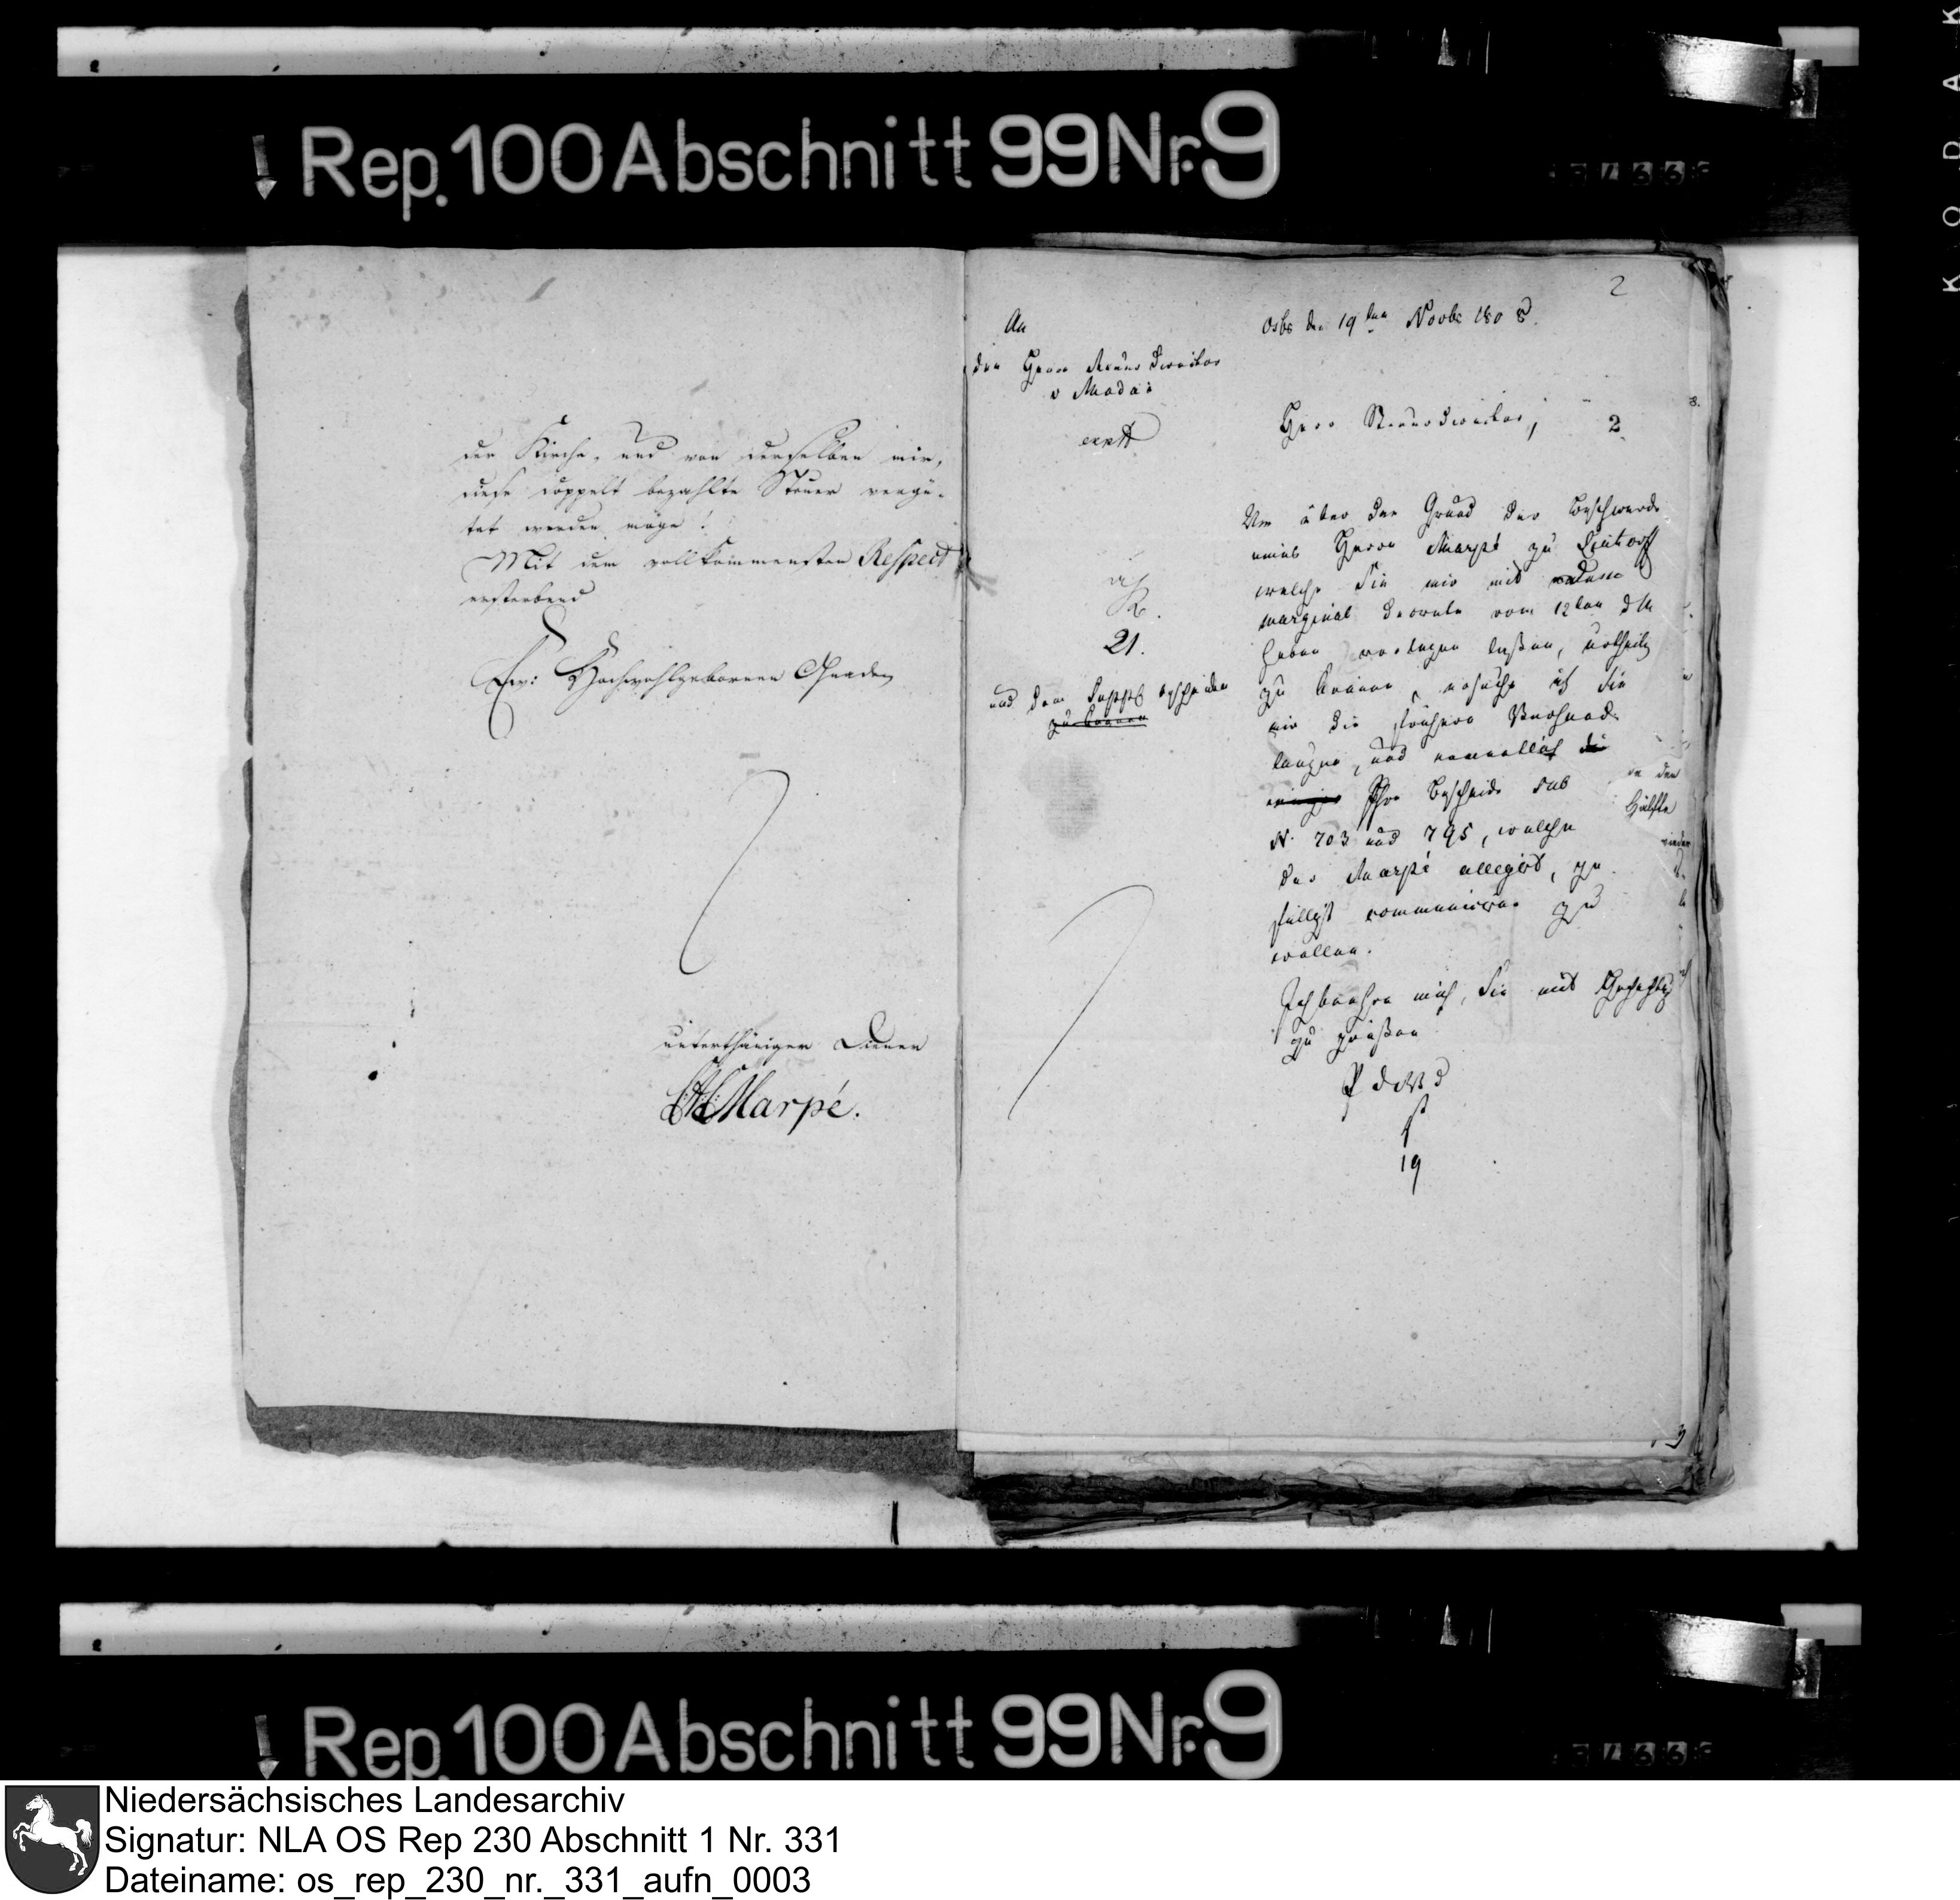 Rep. 100 Abschnitt 99 Nr. 9
der Kirche, und von derselben mir,
diese doppelt bezahlte Steuer vergü-
tet werden möge!
Mit dem vollkommensten Respect
ersterbend
Ew: Hochwohlgebornen Gnaden
unterthäniger Diener
Marpé.
2
An
den Herrn Steuer Director
v Madai
21.
und dem Suppl bescheiden
zu können
Osbr den 19ten Novbr 1808.
Herr Steuerdirector,
2
Um über den Grund der Beschwerde
eines Herrn Marpé zu Lintorf
welche Sie mir mit
marginal Decrete vom 12ten d M
haben vorlegen lassen, urtheilen
zu können, ersuche ich Sie
mir die frühern Verhand-
lungen, und namentlich die
Ihre Bescheide sub
N. 703 und 795, welche
der Marpé allegirt, ge-
fälligst communiciren zu
wollen.
Ich beehre mich, Sie mit Hochachtung
zu grüßen
P d W D
19
Hälfte
wieder
Rep. 100 Abschnitt 99 Nr. 9
KODAK
Niedersächsisches Landesarchiv
Signatur: NLA OS Rep 230 Abschnitt 1 Nr. 331
Dateiname: os_rep_230_nr._331_aufn_0003